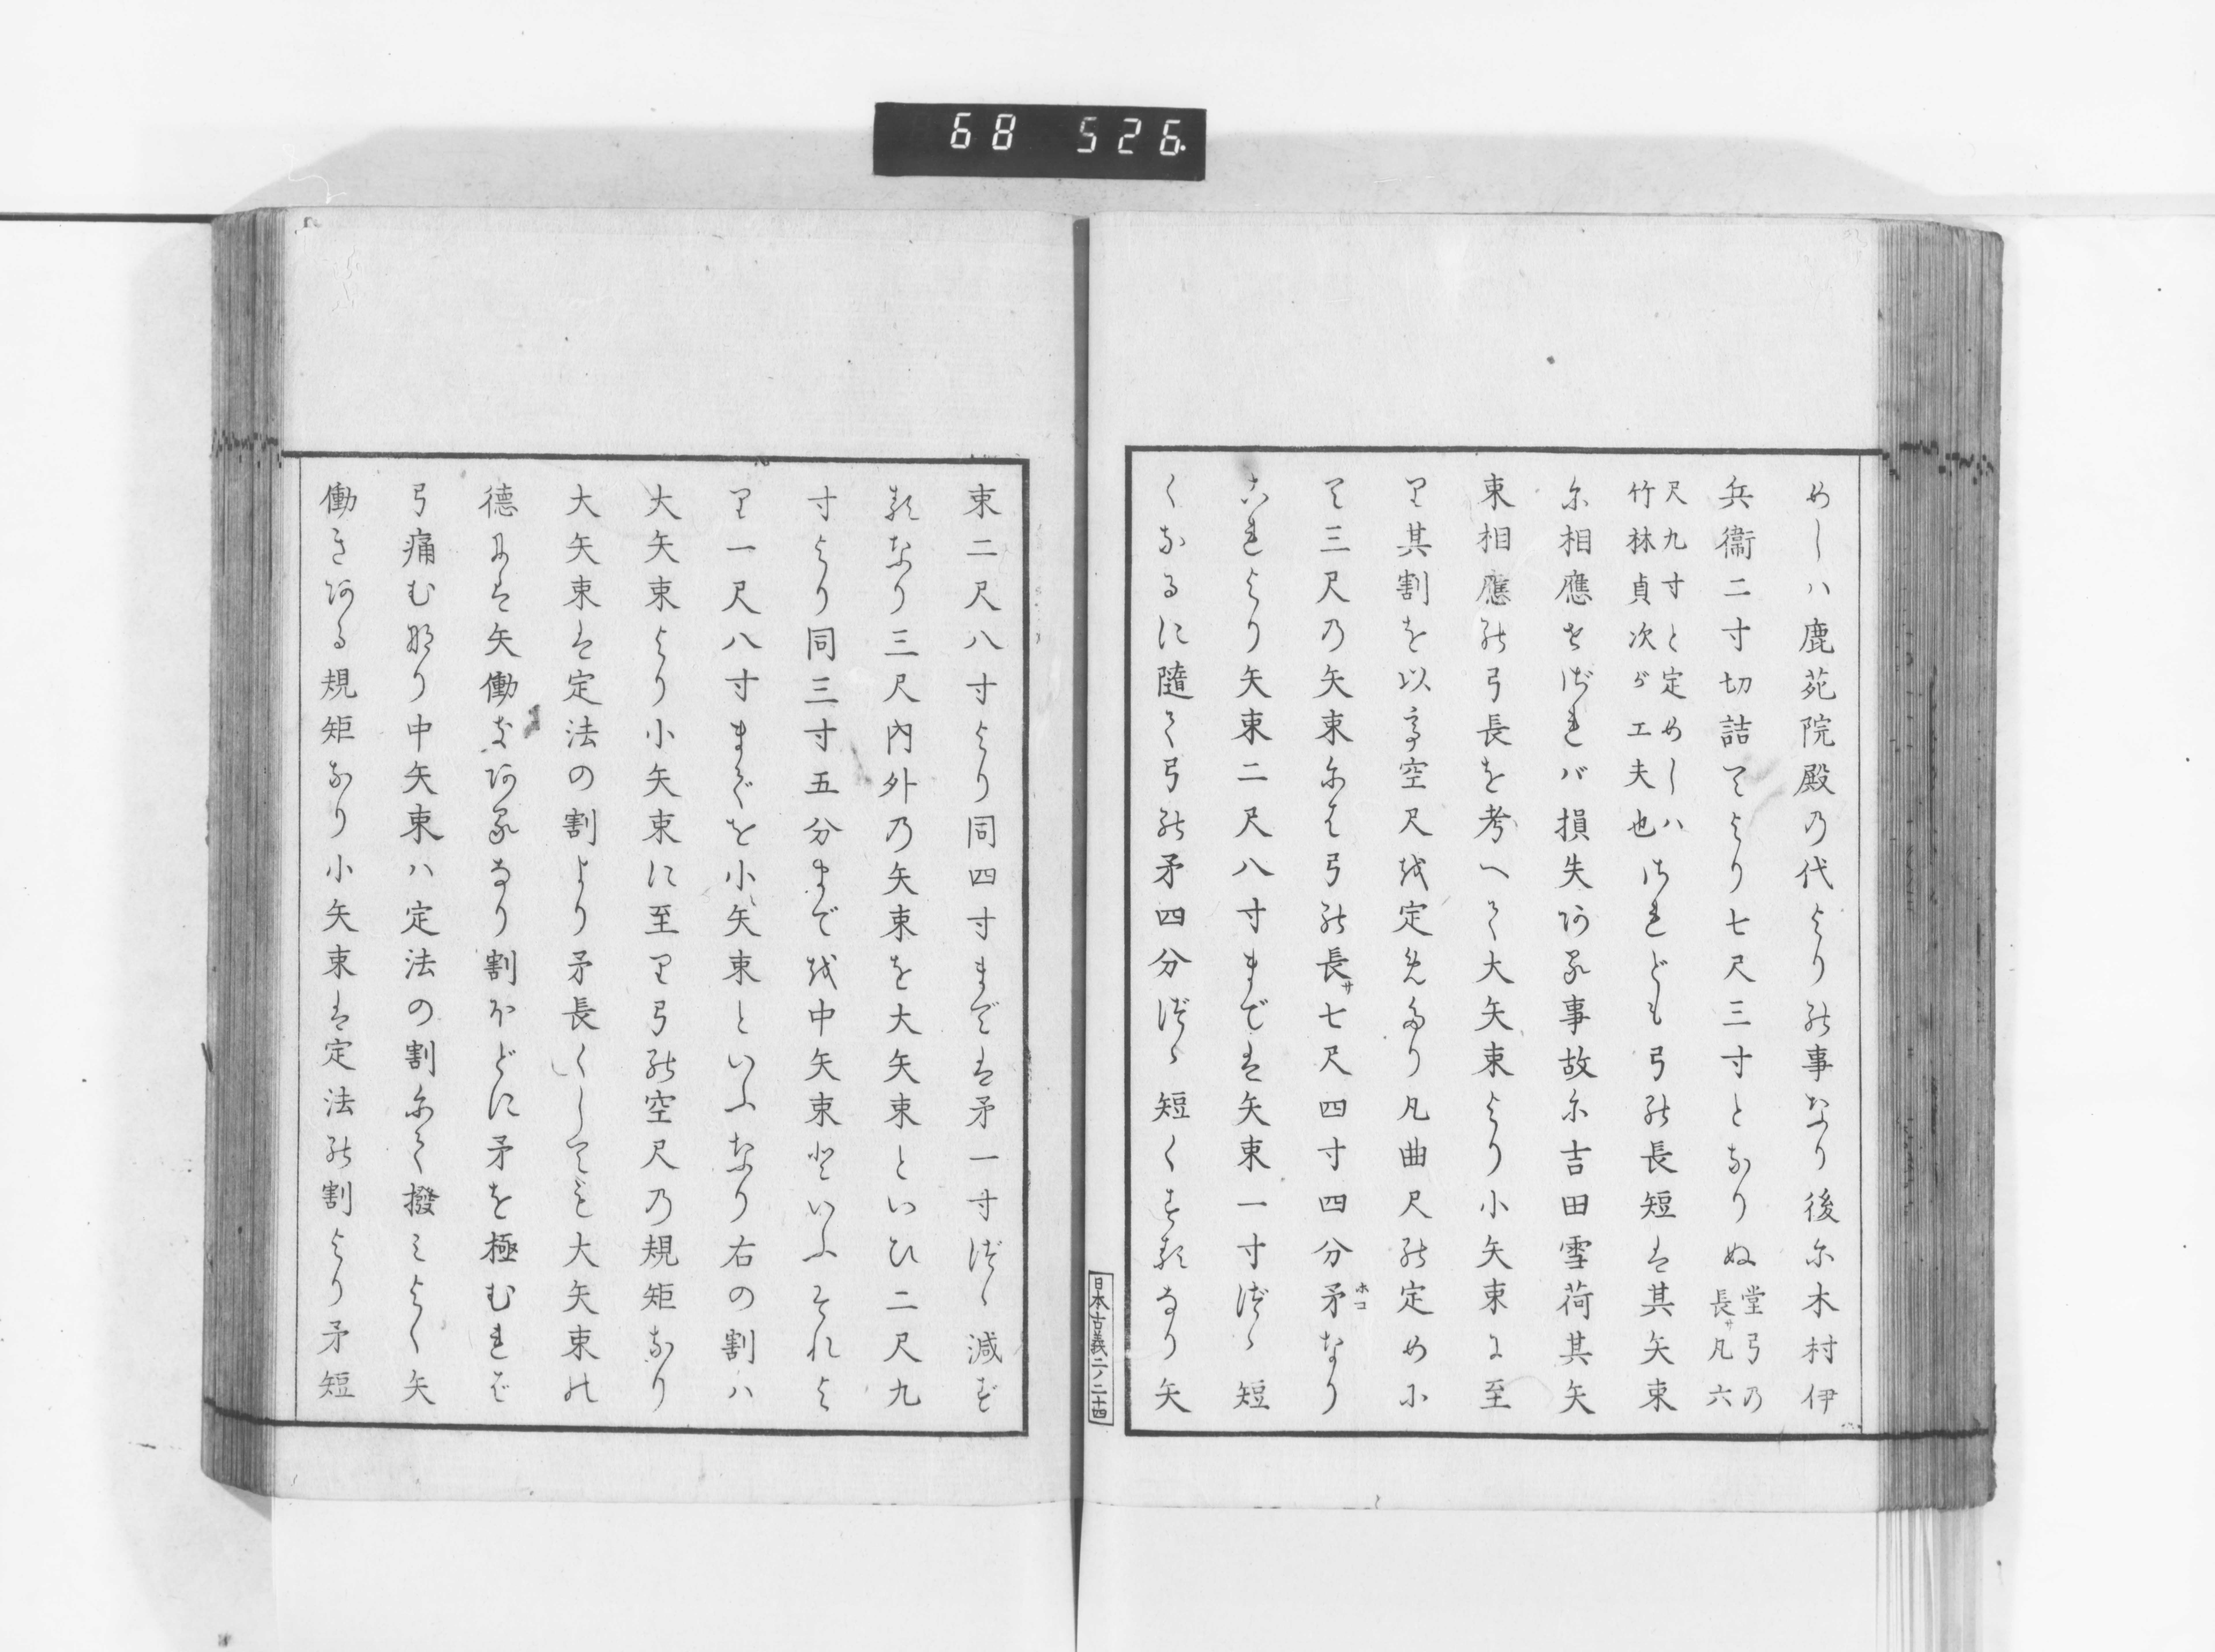 68 526
めしハ鹿苑院殿の代よりの事なり後に木村伊
兵衞二寸切詰てより七尺三寸となりぬ堂弓の長サ凡六
尺九寸と定めしハ竹林貞次ガ工夫也されども弓の長短は其矢束
に相應せざれバ損失ある事故に吉田雪荷其矢
束相應の弓長を考へて大矢束より小矢束に至
り其割を以テ空尺を定めたり凡曲尺の定めに
て三尺の矢束にて弓の長サ七尺四寸四分矛ホコなり
これより矢束二尺八寸までは矢束一寸づゝ短
くなるに隨て弓の矛四分づゝ短くするなり矢
日本古義二ノ二十四
束二尺八寸より同四寸までは矛一寸づゝ減ず
るなり三尺內外の矢束を大矢束といひ二尺九
寸より同三寸五分まで を中矢束といふそれよ
り一尺八寸までを小矢束といふなり右の割ハ
大矢束より小矢束に至り弓の空尺の規矩なり
大矢束は定法の割より矛長くしても大矢束の
德には矢働きあるなり割ほどに矛を極むれば
弓痛むなり中矢束ハ定法の割にて撥ミよく矢
働きある規矩なり小矢束は定法の割より矛短